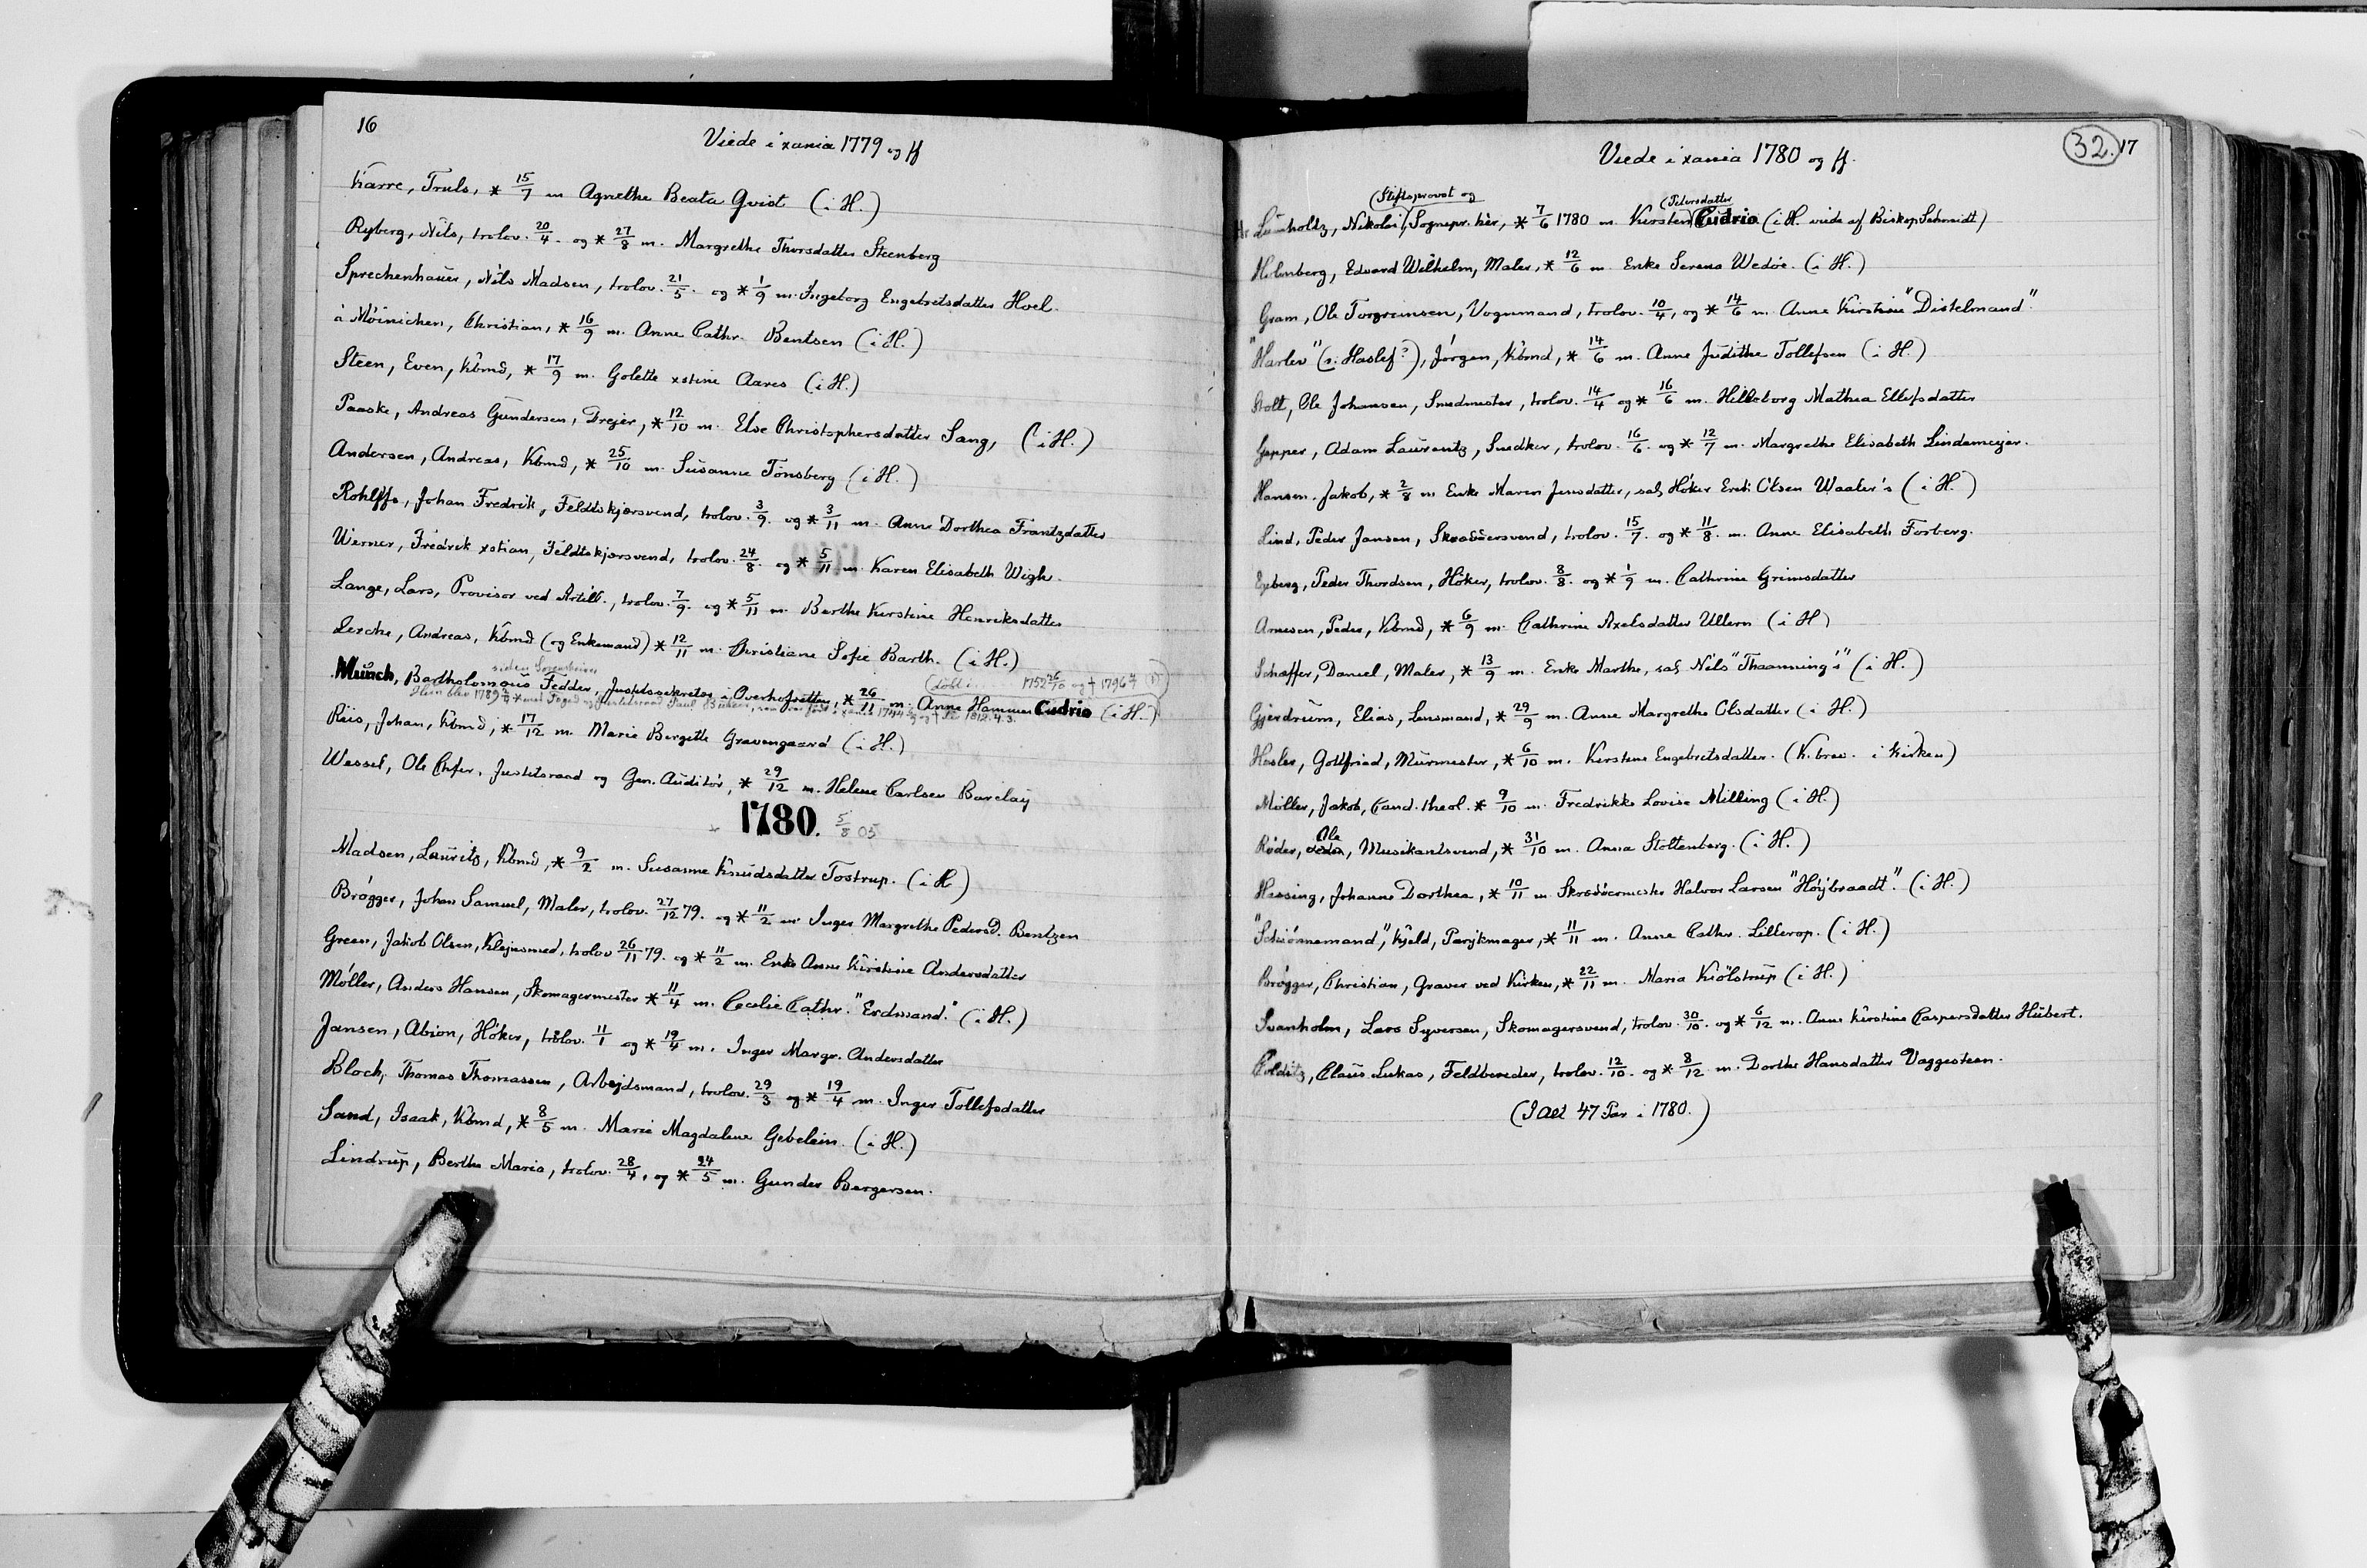 16
Viede i xania 1779 og ff
Karre, Truls, * 15/7 m Agnethe Beata Qvist (i H.)
Ryberg, Nils, trolov. 20/4. og * 27/8 m. Margrethe Thorsdatter Steenberg
Sprechenhauer, Nils Madsen, trolov. 21/5. og * 1/9 m. Ingeborg Engebretsdatter Hoel.
à Möinichen, Christian, * 16/9 m. Anne Cathr. Bentsen (i H.)
Steen, Even, Kbmd, * 17/9 m. Golette xstine Aares (i H.)
Paaske, Andreas Gundersen, Drejer, * 12/10 m. Else Christophersdatter Sang, (i H.)
Andersen, Andreas, Kbmd, * 25/10 m. Susanne Tønsberg (i H.)
Rohlffs, Johan Fredrik, Feldtskjærsvend, trolov. 3/9. og * 3/11 m. Anne Dorthea Frantzdatter
Werner, Fredrik xstian, Feldtskjærsvend, trolov. 24/8. og * 5/11 m. Karen Elisabeth Wigh.
Lange, Lars, Provisor ved Artill., trolov. 7/9. og * 5/11 m. Berthe Kirstine Henriksdatter
Lerche, Andreas, Kbmd (og Enkemand) * 12/11 m. Christiane Sofie Barth. (i H.)
siden Sorenskriver (døbt i 1752 26/10 og † 1796
Munch, Bartholomæus Fedder, Justitssekretær i Overhofretten, * 26/11 m. Anne Hammer Cudrio (i H.)
Hun blev 1789 * med Foged og Justitsraad Paul som var født i xania 1744 og † 1812.4.3.
Riis, Johan, Kbmd, * 17/12 m. Marie Birgitte Gravengaard (i H.)
Wessel, Ole Chfer, Justitsraad og Gen. Auditør, * 29/12 m. Helene Carlsen Barclay
1780. 5/8 05
Madsen, Lauritz, Kbmd, * 9/2 m. Susanne Knudsdatter Tostrup. (i H)
Brøgger, Johan Samuel, Maler, trolov. 27/12 79. og * 11/2 m. Inger Margrethe Pedersd. Bentzen
Green, Jakob Olsen, Klejnsmed, trolov 26/11 79. og * 11/2 m. Enke Anne Kirstine Andersdatter
Møller, Anders Hansen, Skomagermester * 11/4 m. Cecilie Cathr. "Erdmand." (i H.)
Jansen, Abion, Höker, trolov. 11/1 og * 19/4 m. Inger Margr. Andersdatter
Bloch, Thomas Thomassen, Arbejdsmand, trolov. 29/3 og * 19/4 m. Inger Tollefsdatter
Sand, Isaak, Kbmd, * 8/5 m. Marie Magdalene Gebelein. (i H.)
Lindrup, Berthe Maria, trolov. 28/4, og * 24/5 m. Gunder Bergersen.
32. 17
Viede i xania 1780 og ff.
(Stiftsprovst og (Pedersdatter
Hr Lumholtz, Nikolai, Sognepr. her, * 7/6 1780 m. Kirsten Cudrio (i H. viede af Biskop Schmidt)
Holmberg, Edvard Wilhelm, Maler, * 12/6 m. Enke Serena Wedøe. (i H.)
Gram, Ole Torgrimsen, Vognmand, trolov. 10/4, og * 14/6 m. Anne Kirstine "Distelmand".
"Harlev" (ɔ: Haslef?), Jörgen, Kbmd, * 14/6 m. Anne Judithe Tollefsen (i H.)
Stolt, Ole Johansen, Smedmester, trolov. 14/4 og * 16/6 m. Hilleborg Mathea Ellefsdatter
Gepper, Adam Laurentz, Snedker, trolov. 16/6. og * 12/7 m. Margrethe Elisabeth Lindemeijer.
Hansen, Jakob, * 2/8 m Enke Maren Jensdatter, sal. Höker Erik Olsen Waaler's (i H.)
Lind, Peder Jansen, Skræddersvend, trolov. 15/7. og * 11/8. m. Anne Elisabeth Forberg.
Egeberg, Peder Thordsen, Höker, trolov. 8/8. og * 1/9 m. Cathrine Grimsdatter
Arnesen, Peder, Kbmd, * 6/9 m. Cathrine Axelsdatter Ullern (i H)
Schæffer, Daniel, Maler, * 13/9 m. Enke Marthe, sal. Nils "Thaanning's" (i H.)
Gjerdrum, Elias, Lensmand, * 29/9 m. Anne Margrethe Olsdatter (i H.)
Hasler, Gottfried, Murmester, * 6/10 m. Kirstine Engebretsdatter. (K. brev. i Kirken)
Møller, Jakob, Cand. theol. * 9/10 m. Fredrikke Lovise Milling (i H.)
Røder, Ole, Musikantsvend, * 31/10 m. Anna Stoltenberg. (i H.)
Hessing, Johanne Dorthea, * 10/11 m. Skræddermester Halvor Larsen "Höijbraadt". (i H.)
"Schiönnemand", Kjeld, Parykmager, * 11/11 m. Anne Cathr. Lillerop. (i H.)
Brøgger, Christian, Graver ved Kirken, * 22/11 m. Maria Kiölstrup (i H.)
Svanholm, Lars Syversen, Skomagersvend, trolov. 30/10. og * 6/12 m. Anne Kirstine Caspersdatter Hübert.
Colditz, Claus Lukas, Feldbereder, trolov. 12/10. og * 8/12 m. Dorthe Hansdatter Vaggesteen.
(I alt 47 Par i 1780.)